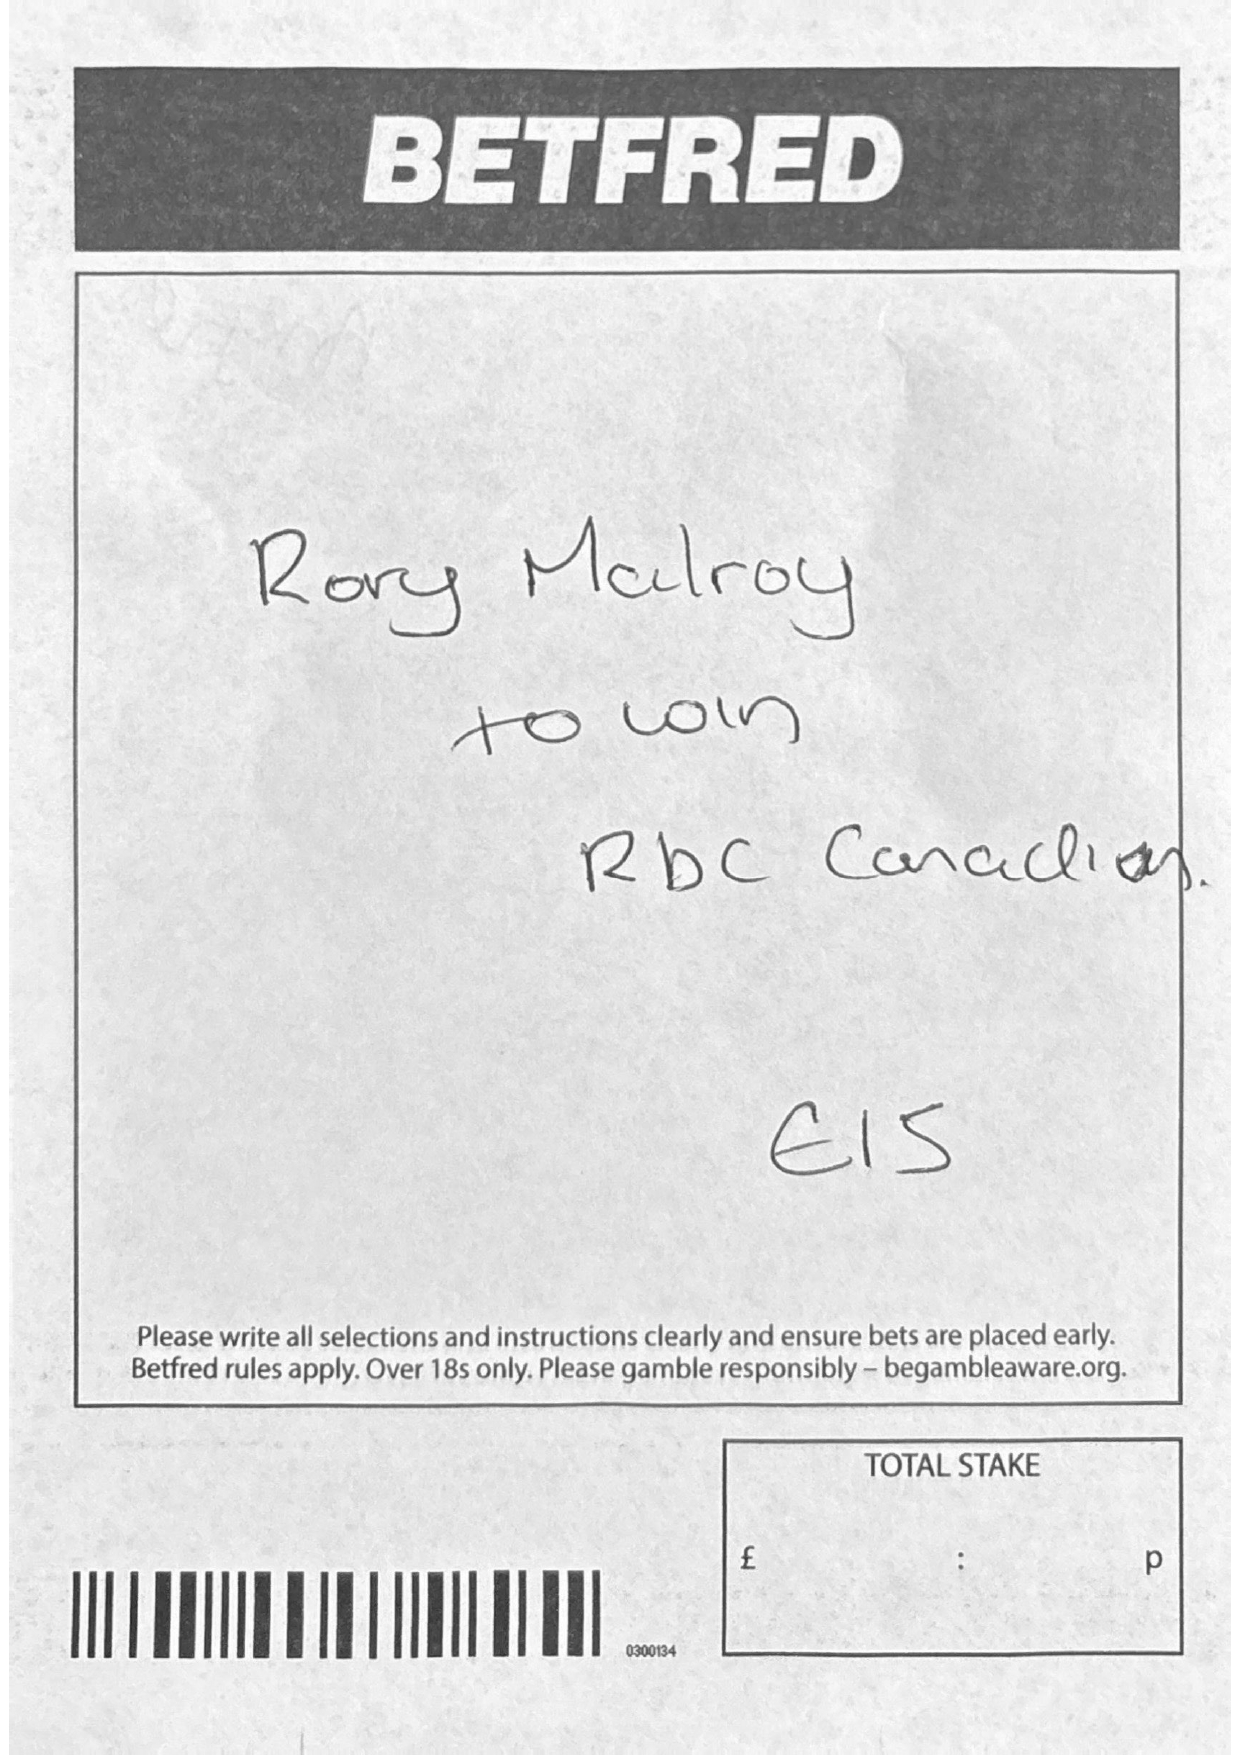 BETFRED
Rory McIlroy
to win
RbC Canadian.
£15
Please write all selections and instructions clearly and ensure bets are placed early.
Betfred rules apply. Over 18s only. Please gamble responsibly – begambleaware.org.
TOTAL STAKE
£ : p
0300134